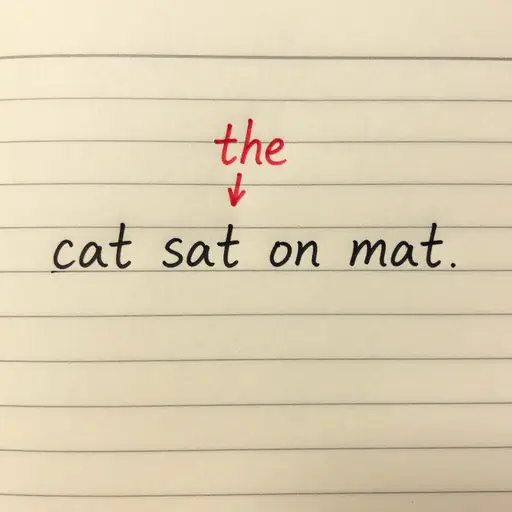 the
↓
cat sat on mat.